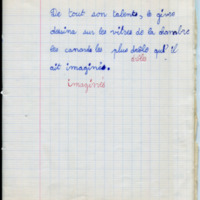 De tout son talent, le givre
dessine sur les vitres de la chambre
les canards les plus drôle qu'il
drôle
ait imaginés.
imaginé